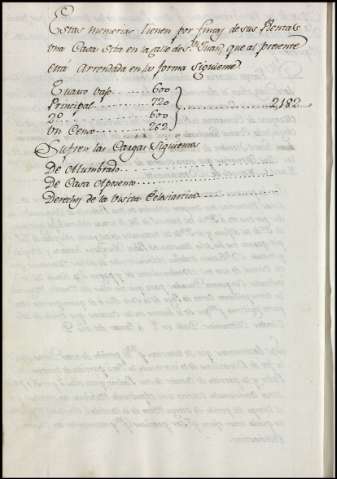 Estas memorias tienen por fincas de sus Rentas
una Casa sita en la calle de Sn Juan, que al presente
esta Arrendada en la forma siguiente
Quarto bajo 600
Principal 720 2182
2º 600
Un Censo 262
Sufren las Cargas siguientes
De Alumbrado
De Casa Aposento
Derechos de la Visita Eclesiastica